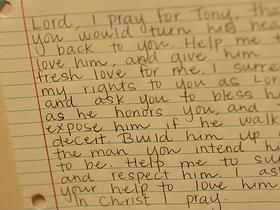 Lord, I pray for Tony, tha
you would turn his hea
back to you. Help me t
love him, and give him
fresh love for me. I surre
my rights to you as Lor
and ask you to bless h
as he honors you, and
expose him if he walk
deceit. Build him up
the man you intend hi
to be. Help me to su
and respect him. I as
your help to love him
In Christ I pray.